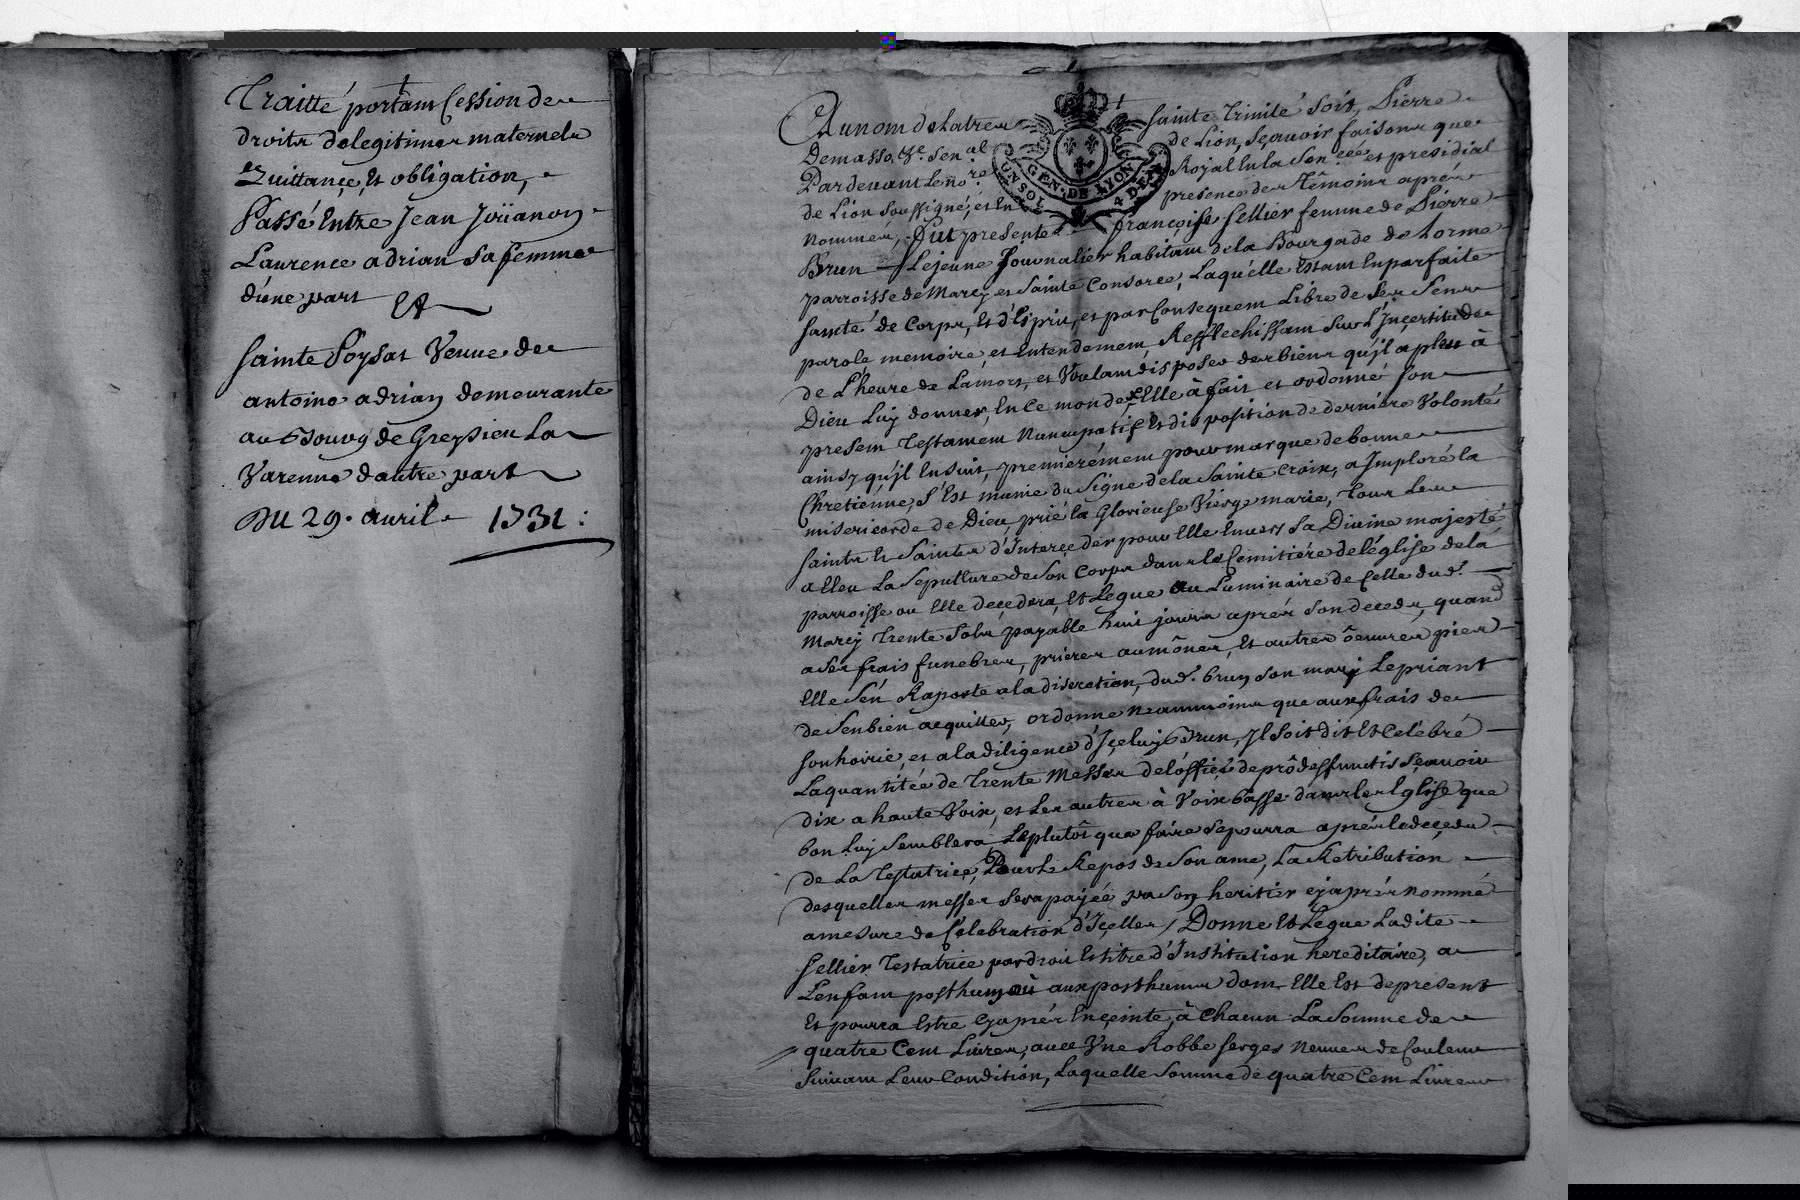 Traitté portant Cession de
droits de legitimes maternels
Quittance, Et obligation,
Passé Entre Jean Joüanon
Laurence adrian Sa femme
d'une part Et
Sainte Poysat Veuve de
antoine adrian demeurante
au Bourg de Greysieu La
Varenne dautre part
DU 29. avril 1731 :
Au nom de la tres sainte Trinité soit, Pierre
Demasso, de Lion, Sçauoir faisons que
Pardeuant Le no.re Royal En la Sen.cée et presidial
de Lion soussigné, et En presence des Témoins apres
nommés, Fut presente françoise Sellier femme de Pierre
Brun Lejeune Journalier habitant de la Bourgade de Lorme
parroisse de Marcy et Sainte Consorce, Laquelle Estant En parfaite
santé de Corps, Et d'Esprit, et par Consequent Libre de Ses Sens
parole memoire et Entendement, Reflechissant Sur L'Incertitude
de L'heure de La mort, et Voulant disposer des biens qu'il a pleu à
Dieu Luy donner, En Ce monde, Elle à fait et ordonné son
present Testament Nuncupatif Et disposition de derniere Volonté
ainsy qu'il Ensuit, premierement pour marque de bonne
Chretienne, S'Est munie du Signe de la Sainte Croix, a Imploré la
misericorde de Dieu, prié la Glorieuse Vierge marie, tous Les
saints Et Saintes d'Interceder pour Elle Enuers Sa Divine majesté,
a Eleu La Sepulture de Son Corps dans le Cemitiére de l'église de la
parroisse ou Elle decedera, Et Legue au Luminaire de Celle dud.
Marcy Trente Sols payable huit jours aprés Son decedz, quand
a Ses frais funebres, prieres aumônes, Et autres oeuures pies
Elle S'en Raporte a la discretion, dud. brun Son mary Le priant
de S'en bien acquitter, ordonne Neanmoins que aux frais de
son hoirie, et a la diligence d'Iceluy Brun, Il Soit dit Et Celebré
La quantitée de Trente Messes de l'office de pro deffunctis Sçauoir
dix a haute Voix, et Les autres à Voix basse dans les Eglise que
bon Luy Semblera, Le plutôt que faire Se pourra aprés le decedz
de La Testatrice, Pour Le Repos de Son ame, La Retribution
desquelles messes Sera payée par Son heritier cy aprés nommé
a mesure de Celebration d'Icelles, Donne Et Legue Ladite
Sellier Testatrice par droit Et titre d'Institution hereditaire, a
L'enfant posthume ou aux posthumes dont Elle Est de present
Et pourra Estre Cy aprés Enceinte, à Chacun La Somme de
quatre Cent Liures, auec Une Robbe serges Neuues de Couleur
Suiuant Leur Condition, Laquelle Somme de quatre Cent Liures
GEN. DE LYON
4 DEN